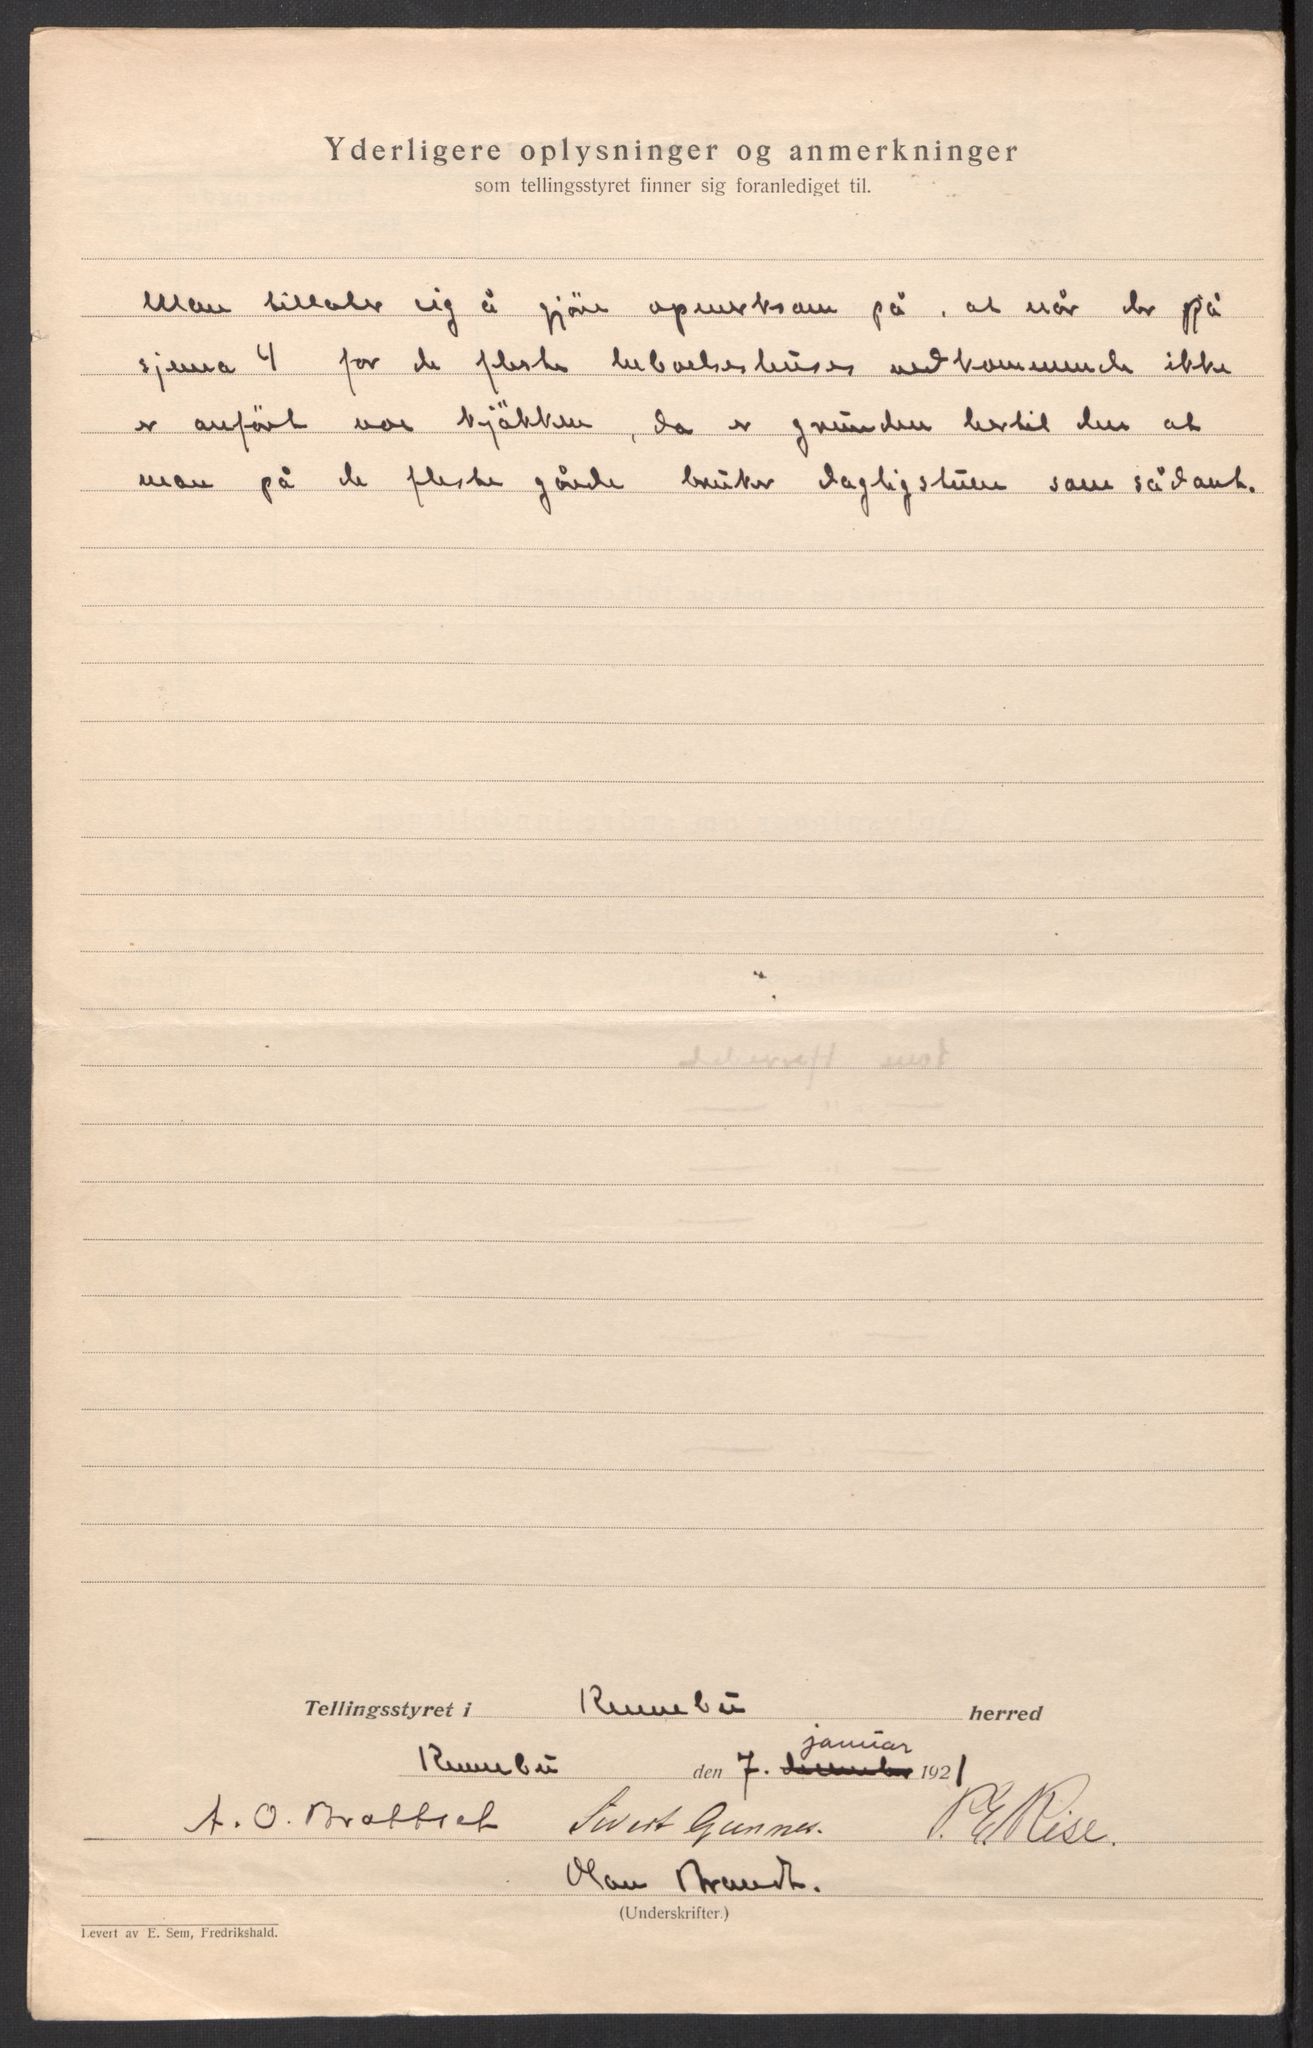 Yderligere oplysninger og anmerkninger
som tellingsstyret finner sig foranlediget til.
Man tillater sig å gjöre opmerksom på, at når der på
sjema 4 for de fleste beboelseshuses vedkommende ikke
er anfört noe kjökken, da er grunden hertil den at
man på de fleste gårde bruker dagligstuen som sådant.
Tellingsstyret i Rennebu herred
januar
Rennebu den 7. december 1921
A. O. Brattset Sivert Gunnes. P. E. Rise.
Olav Brandt.
(Underskrifter.)
Levert av E. Sem, Fredrikshald.